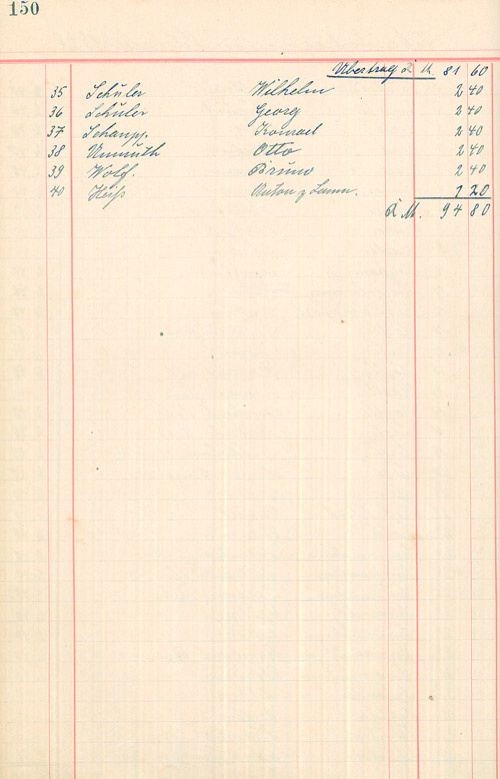 150
Übertrag R M 81 60
35 Schüler Wilhelm 2 40
36 Schüler Georg 2 40
37 Schaupp. Konrad 2 40
38 Unmuth Otto 2 40
39 Wolf. Bruno 2 40
40 Heiß Anton z. Lamm. 1 20
R M. 94 80